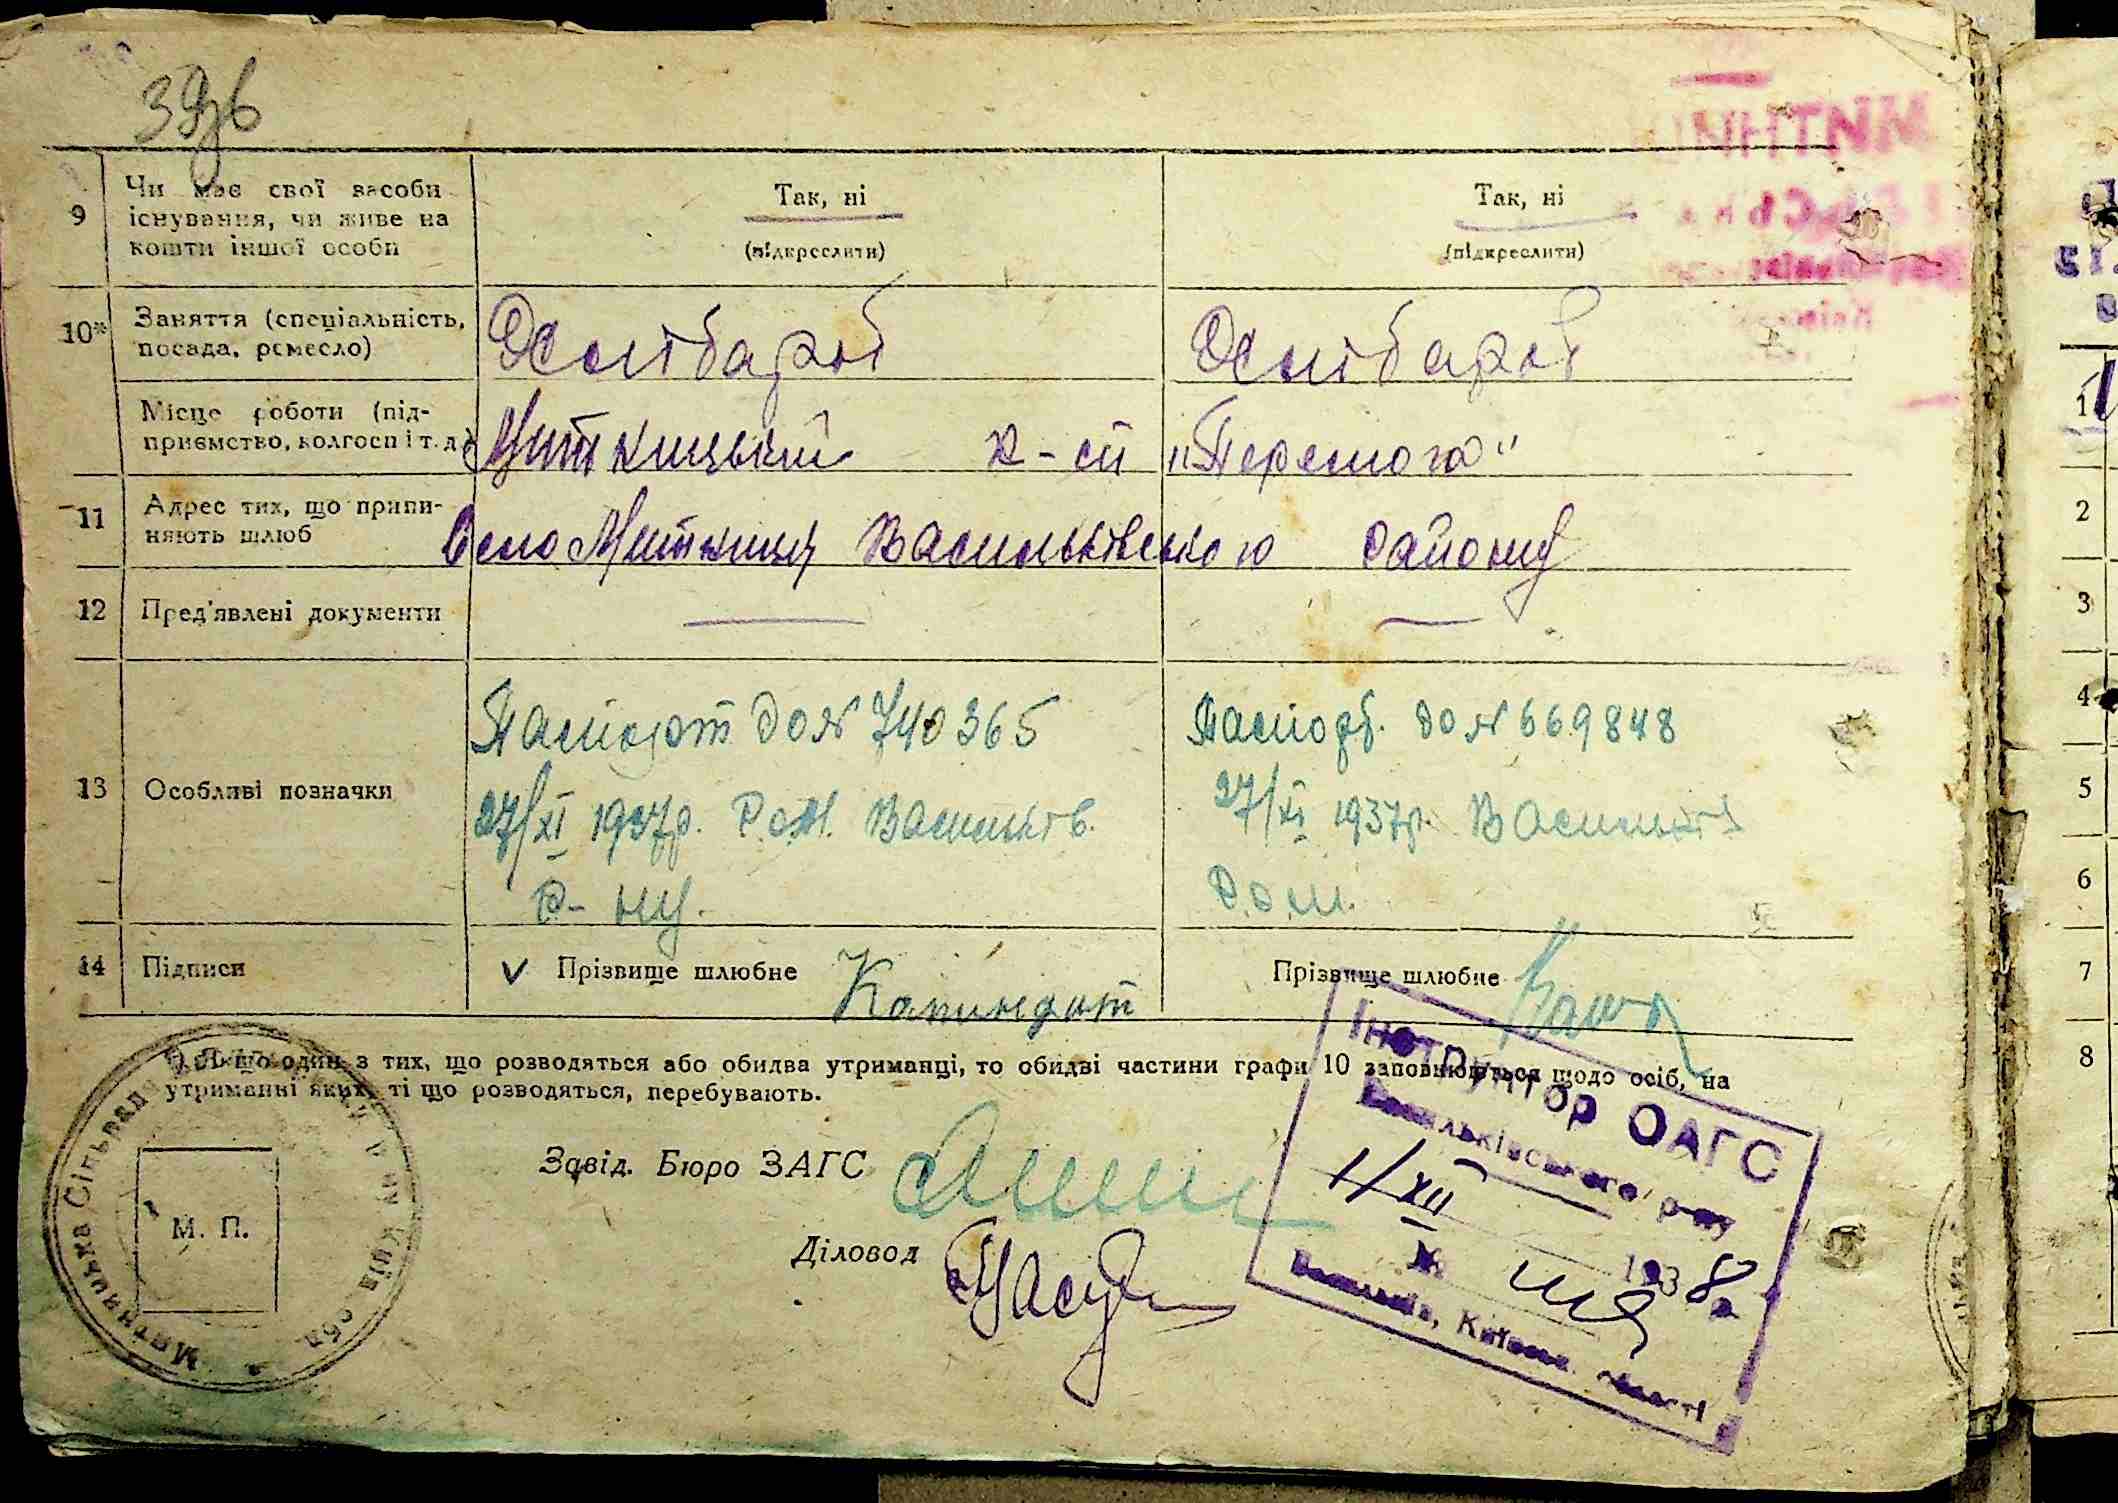 39зв
9 Чи має свої засоби існування, чи живе на кошти іншої особи
Так, ні
(підкреслити)
Так, ні
(підкреслити)
10* Заняття (спеціальність, посада, ремесло)
Місце роботи (підприємство, колгосп і т. д.)
к-сп „Перемога"
11 Адрес тих, що припиняють шлюб
Село Митниця Васильківського району
12 Пред'явлені документи
13 Особливі позначки
Паспорт до № 740365
27/XI 1937р. Р.О.М. Васильків.
р-ну.
Паспорт. до № 669848
27/XI 1937р. Васильків
Р.О.М.
14 Підписи
V Прізвище шлюбне
Прізвище шлюбне
*) Якщо один з тих, що розводяться або обидва утриманці, то обидві частини графи 10 заповнюються щодо осіб, на
утриманні яких, ті що розводяться, перебувають.
Завід. Бюро ЗАГС
Діловод
М. П.
Інструктор ОАГС
Васильківського р-ну
1/XII 1938 р.
№
Васильків, Київськ. області
МИТНИЦ
1
2
3
4
5
6
7
8